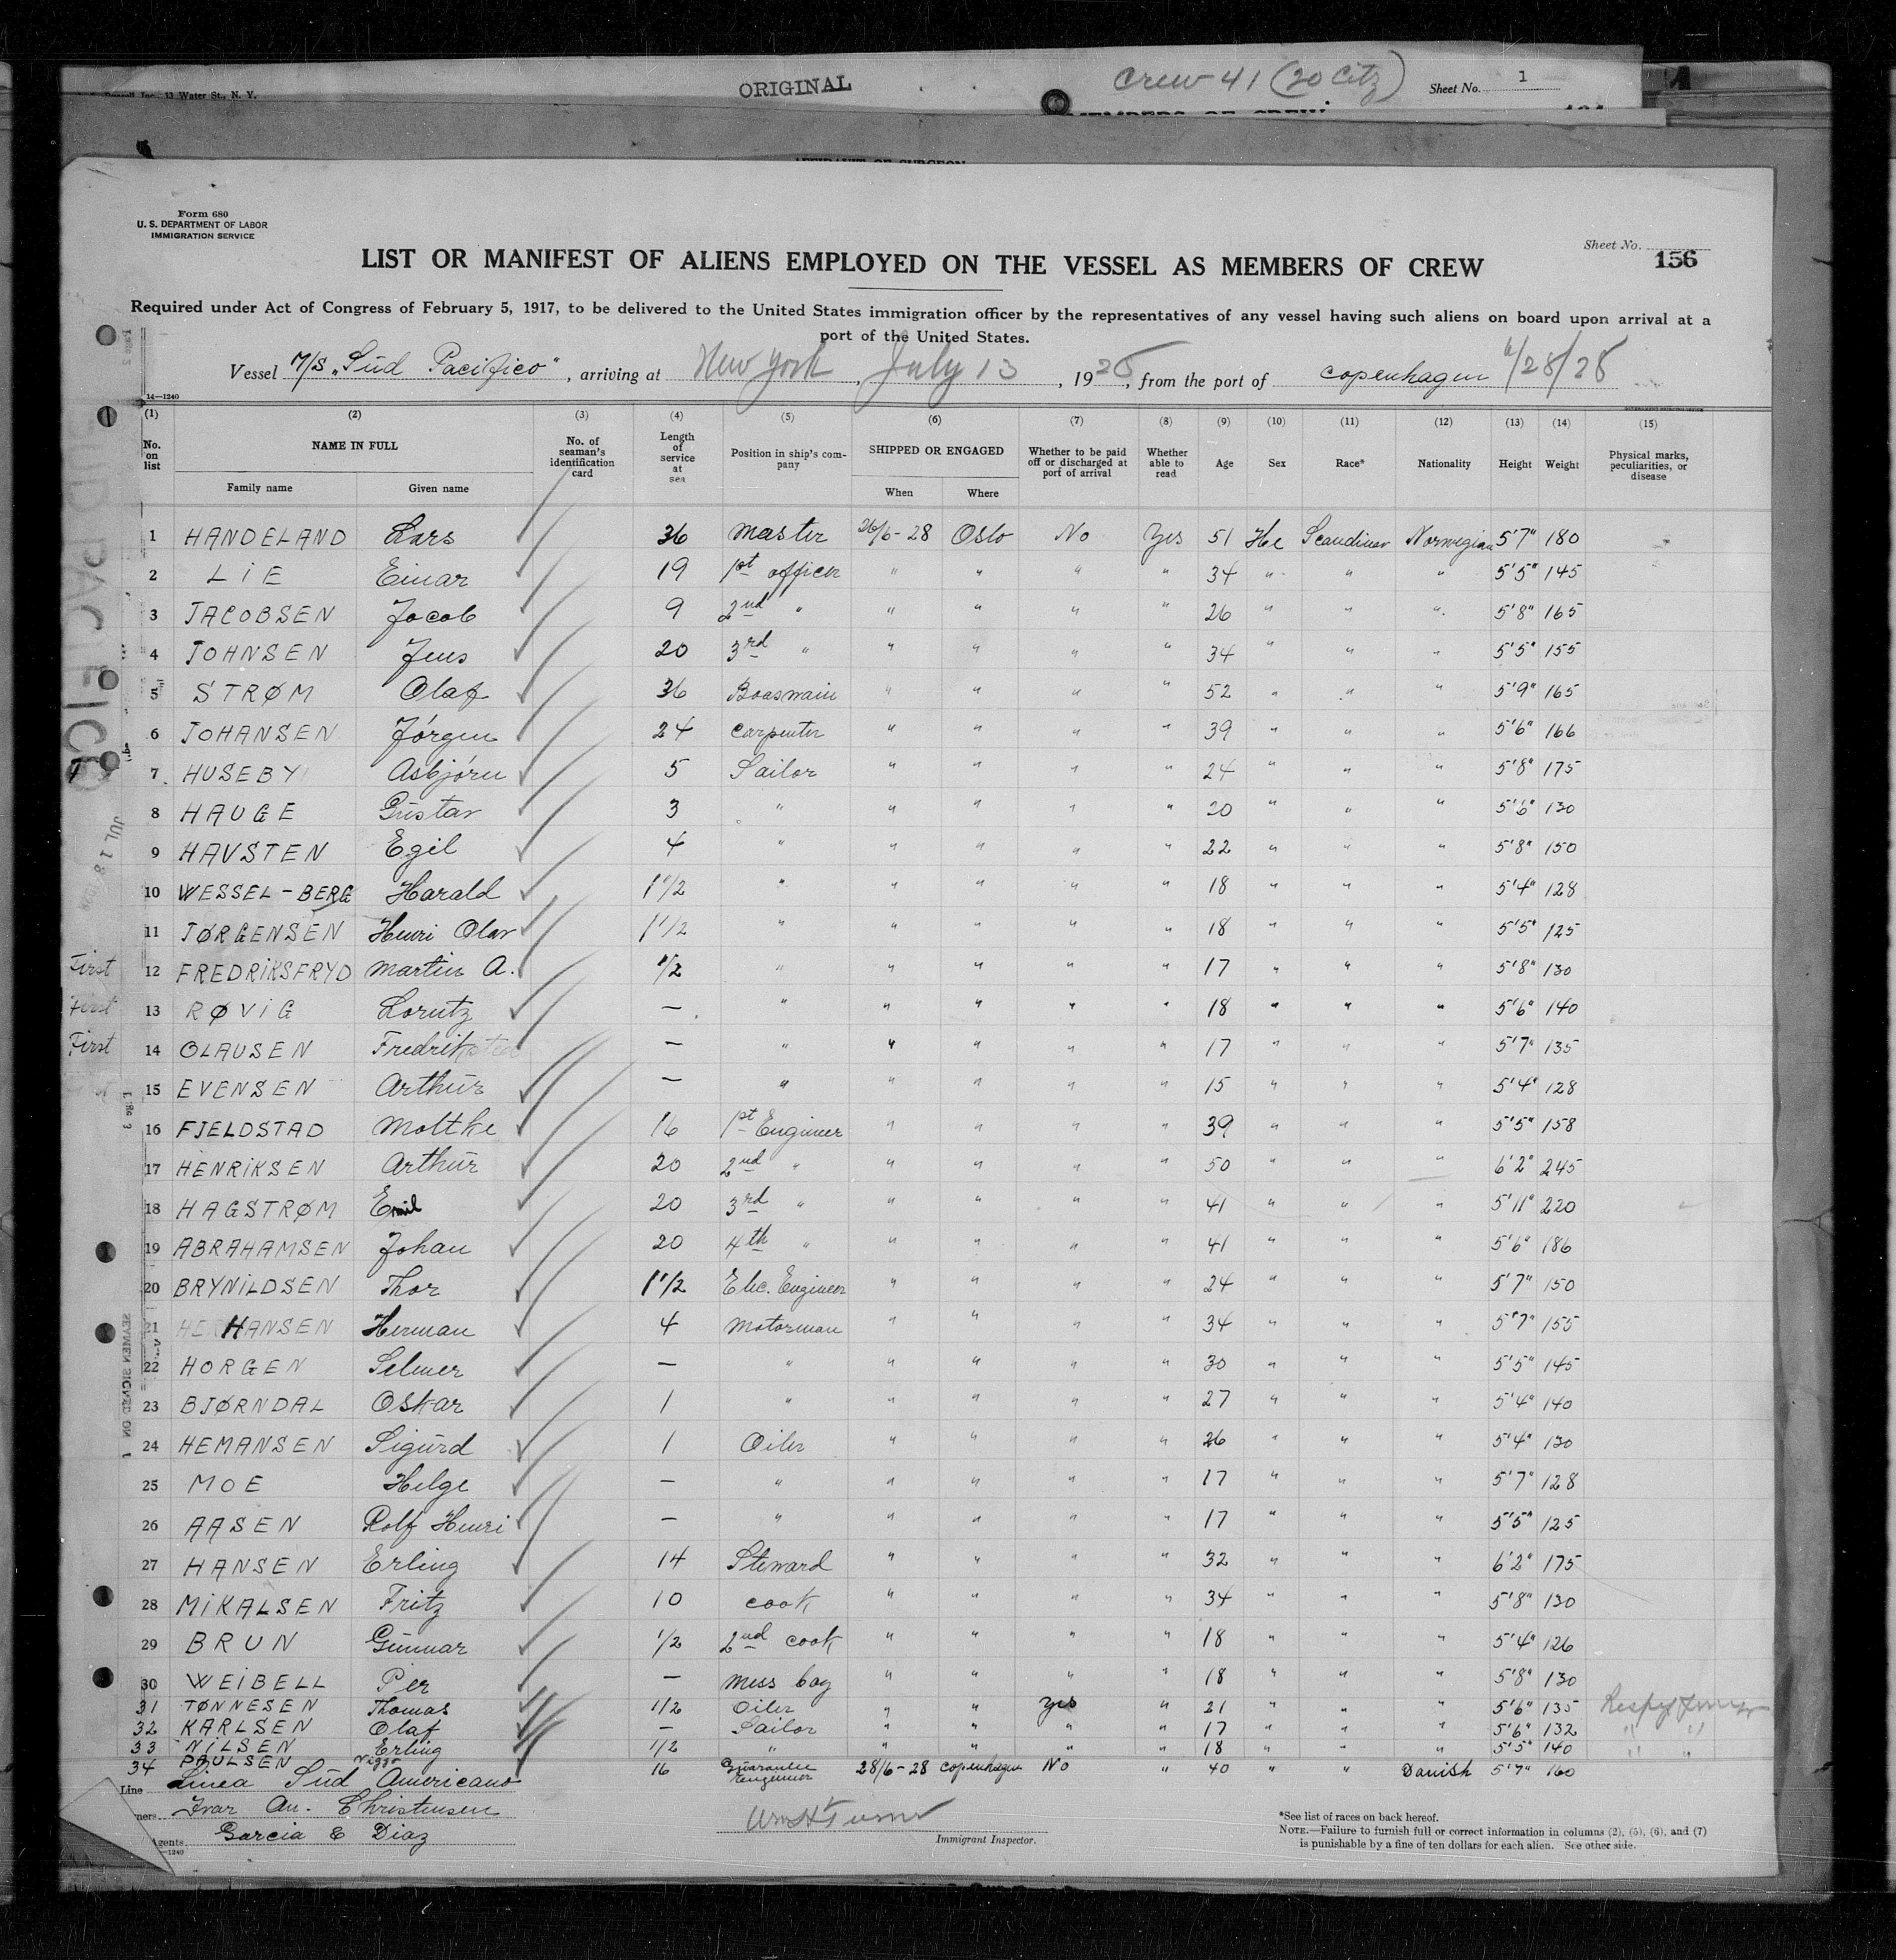 ORIGINAL
Crew 41 (20 Citz)
Sheet No. 1
13 Water St., N. Y.
MEMBERS OF CREW
AFFIDAVIT OF SURGEON
Form 680
U. S. DEPARTMENT OF LABOR
IMMIGRATION SERVICE
Sheet No.
156
LIST OR MANIFEST OF ALIENS EMPLOYED ON THE VESSEL AS MEMBERS OF CREW
Required under Act of Congress of February 5, 1917, to be delivered to the United States immigration officer by the representatives of any vessel having such aliens on board upon arrival at a
port of the United States.
Vessel M/S „Sud Pacifico", arriving at New York, July 13, 1928, from the port of Copenhagen 6/28/28
14—1240
(1) (2) (3) (4) (5) (6) (7) (8) (9) (10) (11) (12) (13) (14) (15)
No. on list NAME IN FULL Family name Given name No. of seaman's identification card Length of service at sea Position in ship's company SHIPPED OR ENGAGED When Where Whether to be paid off or discharged at port of arrival Whether able to read Age Sex Race* Nationality Height Weight Physical marks, peculiarities, or disease
1 HANDELAND Lars 36 Master 26/6-28 Oslo No Yes 51 He Scandinav Norwegian 5'7" 180
2 LiE Einar 19 1st officer " " " " 34 " " " 5'5" 145
3 JACOBSEN Jacob 9 2nd " " " " " 26 " " " 5'8" 165
4 JOHNSEN Jens 20 3rd " " " " " 34 " " " 5'5" 155
5 STRØM Olaf 36 Boasmain " " " " 52 " " " 5'9" 165
6 JOHANSEN Jórgen 24 Carpenter " " " " 39 " " " 5'6" 166
7 HUSEBY Asbjórn 5 Sailor " " " " 24 " " " 5'8" 175
8 HAUGE Gustav 3 " " " " " 20 " " " 5'6" 130
9 HAVSTEN Egil 4 " " " " " 22 " " " 5'8" 150
10 WESSEL-BERG Harald 1 1/2 " " " " " 18 " " " 5'4" 128
11 JØRGENSEN Henri Olav 1 1/2 " " " " " 18 " " " 5'5" 125
First 12 FREDRiKSFRYD Martin A. 1/2 " " " " " 17 " " " 5'8" 130
First 13 RØViG Lorutz — " " " " " 18 " " " 5'6" 140
First 14 OLAUSEN Fredrik — " " " " " 17 " " " 5'7" 135
15 EVENSEN Arthur — " " " " " 15 " " " 5'4" 128
16 FJELDSTAD Moltke 16 1st Engineer " " " " 39 " " " 5'5" 158
17 HENRiKSEN Arthur 20 2nd " " " " " 50 " " " 6'2" 245
18 HAGSTRØM Emil 20 3rd " " " " " 41 " " " 5'11" 220
19 ABRAHAMSEN Johan 20 4th " " " " " 41 " " " 5'6" 186
20 BRYNiLDSEN Thor 1 1/2 Elec. Engineer " " " " 24 " " " 5'7" 150
21 HANSEN Herman 4 Motorman " " " " 34 " " " 5'7" 155
22 HORGEN Selmer — " " " " " 30 " " " 5'5" 145
23 BJØRNDAL Oskar 1 " " " " " 27 " " " 5'4" 140
24 HEMANSEN Sigurd 1 Oiler " " " " 26 " " " 5'4" 130
25 MOE Helge — " " " " " 17 " " " 5'7" 128
26 AASEN Rolf Henri — " " " " " 17 " " " 5'5" 125
27 HANSEN Erling 14 Steward " " " " 32 " " " 6'2" 175
28 MiKALSEN Fritz 10 cook " " " " 34 " " " 5'8" 130
29 BRUN Gunnar 1/2 2nd cook " " " " 18 " " " 5'4" 126
30 WEiBELL Per — Mess boy " " " " 18 " " " 5'8" 130
31 TØNNESEN Thomas 1/2 Oiler " " Yes " 21 " " " 5'6" 135
32 KARLSEN Olaf — Sailor " " " " 17 " " " 5'6" 132
33 NiLSEN Erling 1/2 " " " " " 18 " " " 5'5" 140
34 PAULSEN Viggo 16 Guarantee Engineer 28/6-28 Copenhagen No " 40 " " Danish 5'7" 160
Line Linea Sud Americano
Owners Ivar An. Christensen
Agents Garcia & Diaz
Wm H Turner
Immigrant Inspector.
*See list of races on back hereof.
NOTE.—Failure to furnish full or correct information in columns (2), (5), (6), and (7)
is punishable by a fine of ten dollars for each alien. See other side.